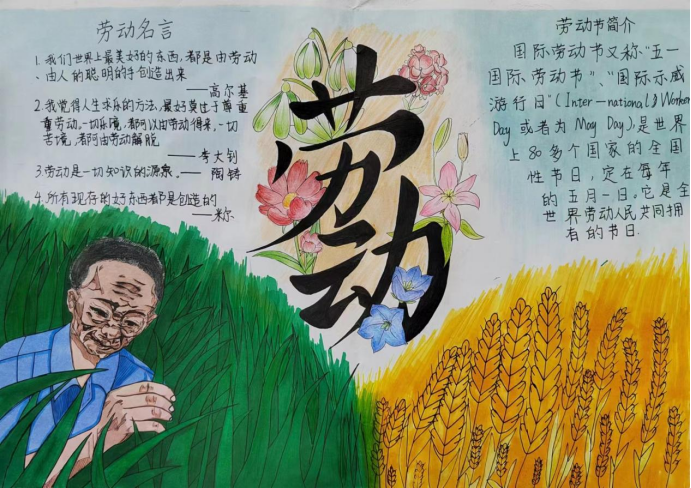 劳动名言
1.我们世界上最美好的东西,都是由劳动
、由人的聪明的手创造出来
——高尔基
2.我觉得人生求乐的方法,最好莫过于尊重
重劳动,一切乐境,都可以由劳动得来,一切
苦境,都可由劳动解脱
——李大钊
3.劳动是一切知识的源泉。——陶铸
4.所有现存的好东西都是创造的
——米尔
劳动
劳动节简介
国际劳动节又称"五一
国际劳动节"、"国际示威
游行日"(Inter-national Worker
Day 或者为 May Day),是世界
上80多个国家的全国
性节日,定在每年
的五月一日。它是全
世界劳动人民共同拥
有的节日.